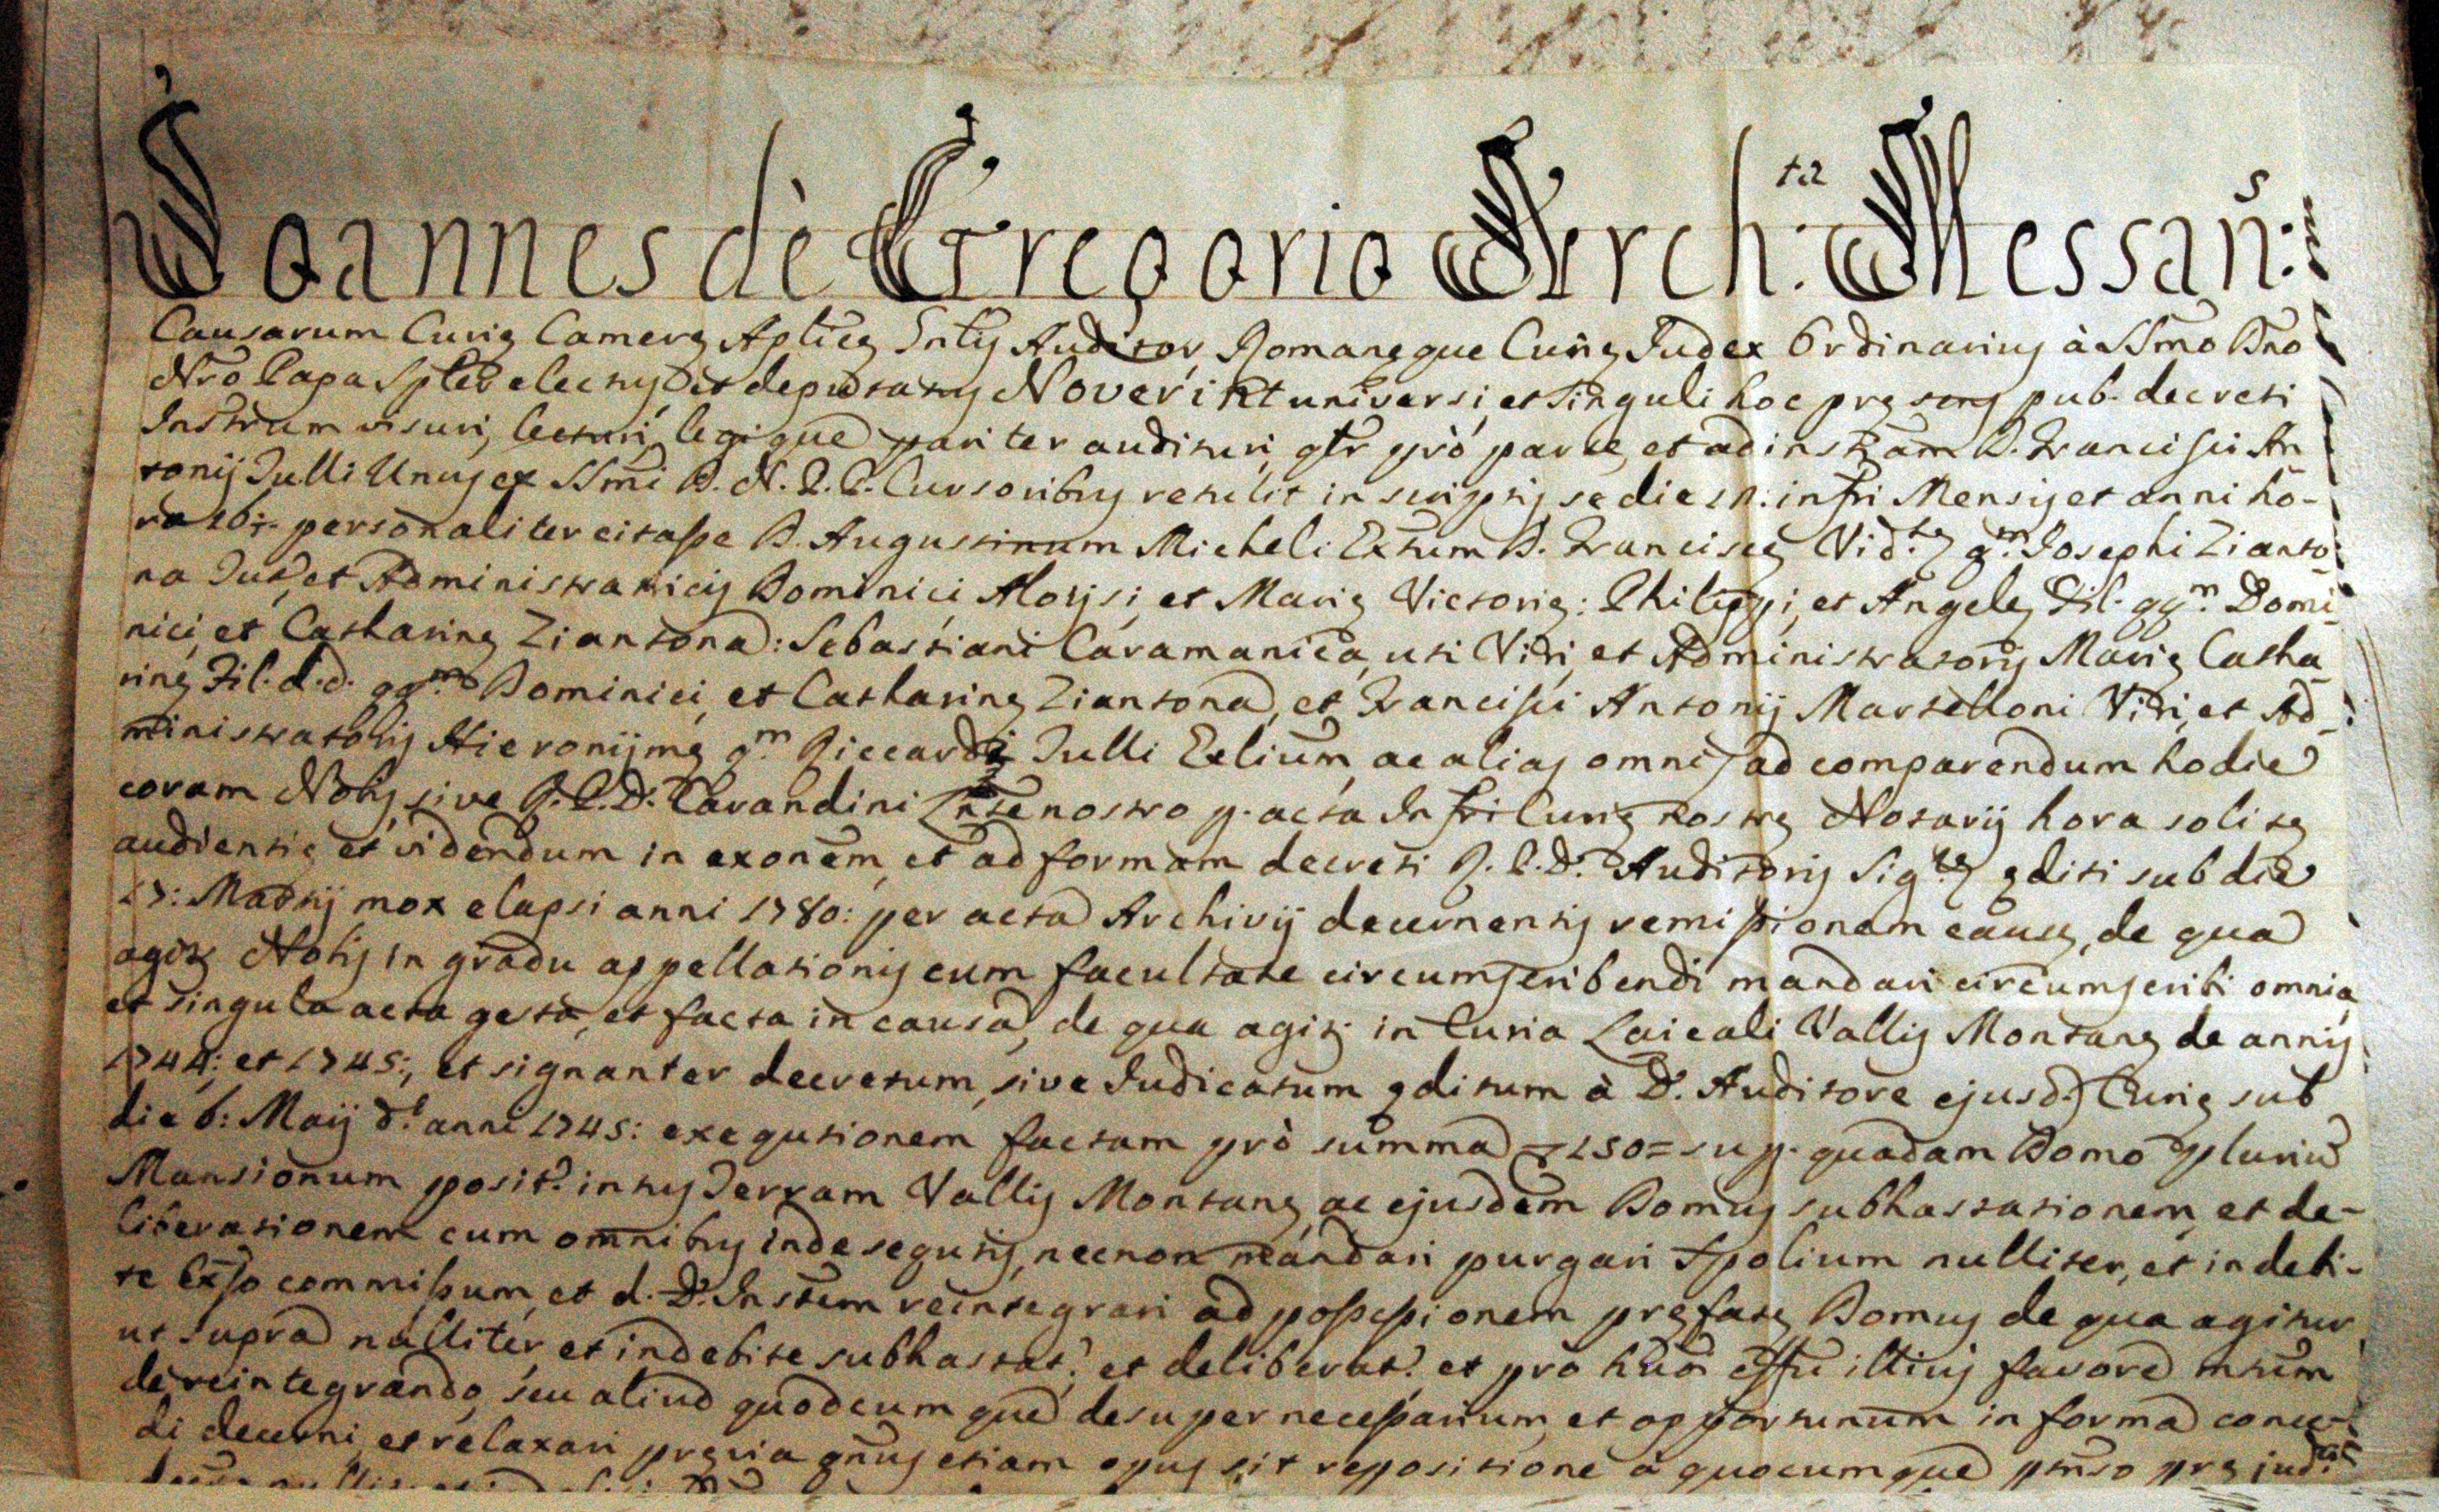 Joannes dè Gregorio Arch:ta Messañ:s
Causarum Curię Camerę Aplicę Gnlis Auditor, Romanęque Curię Judex Ordinarius à SSmo Dno
Nro Papa Splr electus et deputatus Noverint universi, et singuli hoc pręsens pub. decreti
Instrum visuri, lecturi, legique pariter audituri, qtr prò parte, et ad instam D. Francisci An
tonij Julli Unus ex SSmi D. N. P. P. Cursoribus retulit in scriptis se die infri Mensis et anni ho-
ra 16: personaliter citasse D. Augustinum Micheli Exum D. Franciscę Vid.tę qm Josephi Zianto
na Tut, et Administratricis Dominici, Aloysi, et Marię Victorię: Philippi, et Angelę Fil. qqm Domi
nici, et Catharinę Ziantona: Sebastiani Caramanica, uti Viri, et Administratoris Marię Catha
rinę Fil. d.d. qqm Dominici, et Catharinę Ziantona, et Francisci Antonij Martelloni Viri, et Ad
ministratoris Hieronijmę qm Riccardi Julli Exlium, ac alias omnes ad comparendum hodie
coram Nobis, sive R.P.D. Tarandini Lnte nostro p. acta Infri Curię nostrę Notarij hora solita
audientię et videndum in exonem, et ad formam decreti R.P.D. Auditoris Sig.rę editi sub die
17: Martij mox elapsi anni 1780: per acta Archivij decernentis remissionem causę, de qua
agitr Nobis in gradu appellationis cum facultate circumscribendi mandari circumscribi omnia
et singula acta gesta, et facta in causa, de qua agitr in Curia Laicali Vallis Montanę de annis
1744: et 1745:, et signanter decretum, sive Judicatum editum à D. Auditore ejusd. Curię sub
die 6: Maij d.i anni 1745: exequtionem factam prò summa 150= sup. quadam Domo pluriu
Mansionum posit. intus Terram Vallis Montanę, ac ejusdem Domus subhastationem, et de-
liberationem cum omnibus inde sequtis, necnon mandari purgari Spolium nulliter, et indebi-
te commissum, et d. D. Instem reintegrari ad possessionem pręfatę Domus de qua agitur
ut supra nulliter, et indebite subhastat. et deliberat. et pro illius favore mtum
de reintegrando, seu aliud quodcumque desuper necessarium, et opportunum in forma conce-
di decerni, et relaxari prævia quatenus etiam opus sit repositione à quocumque pręjud.